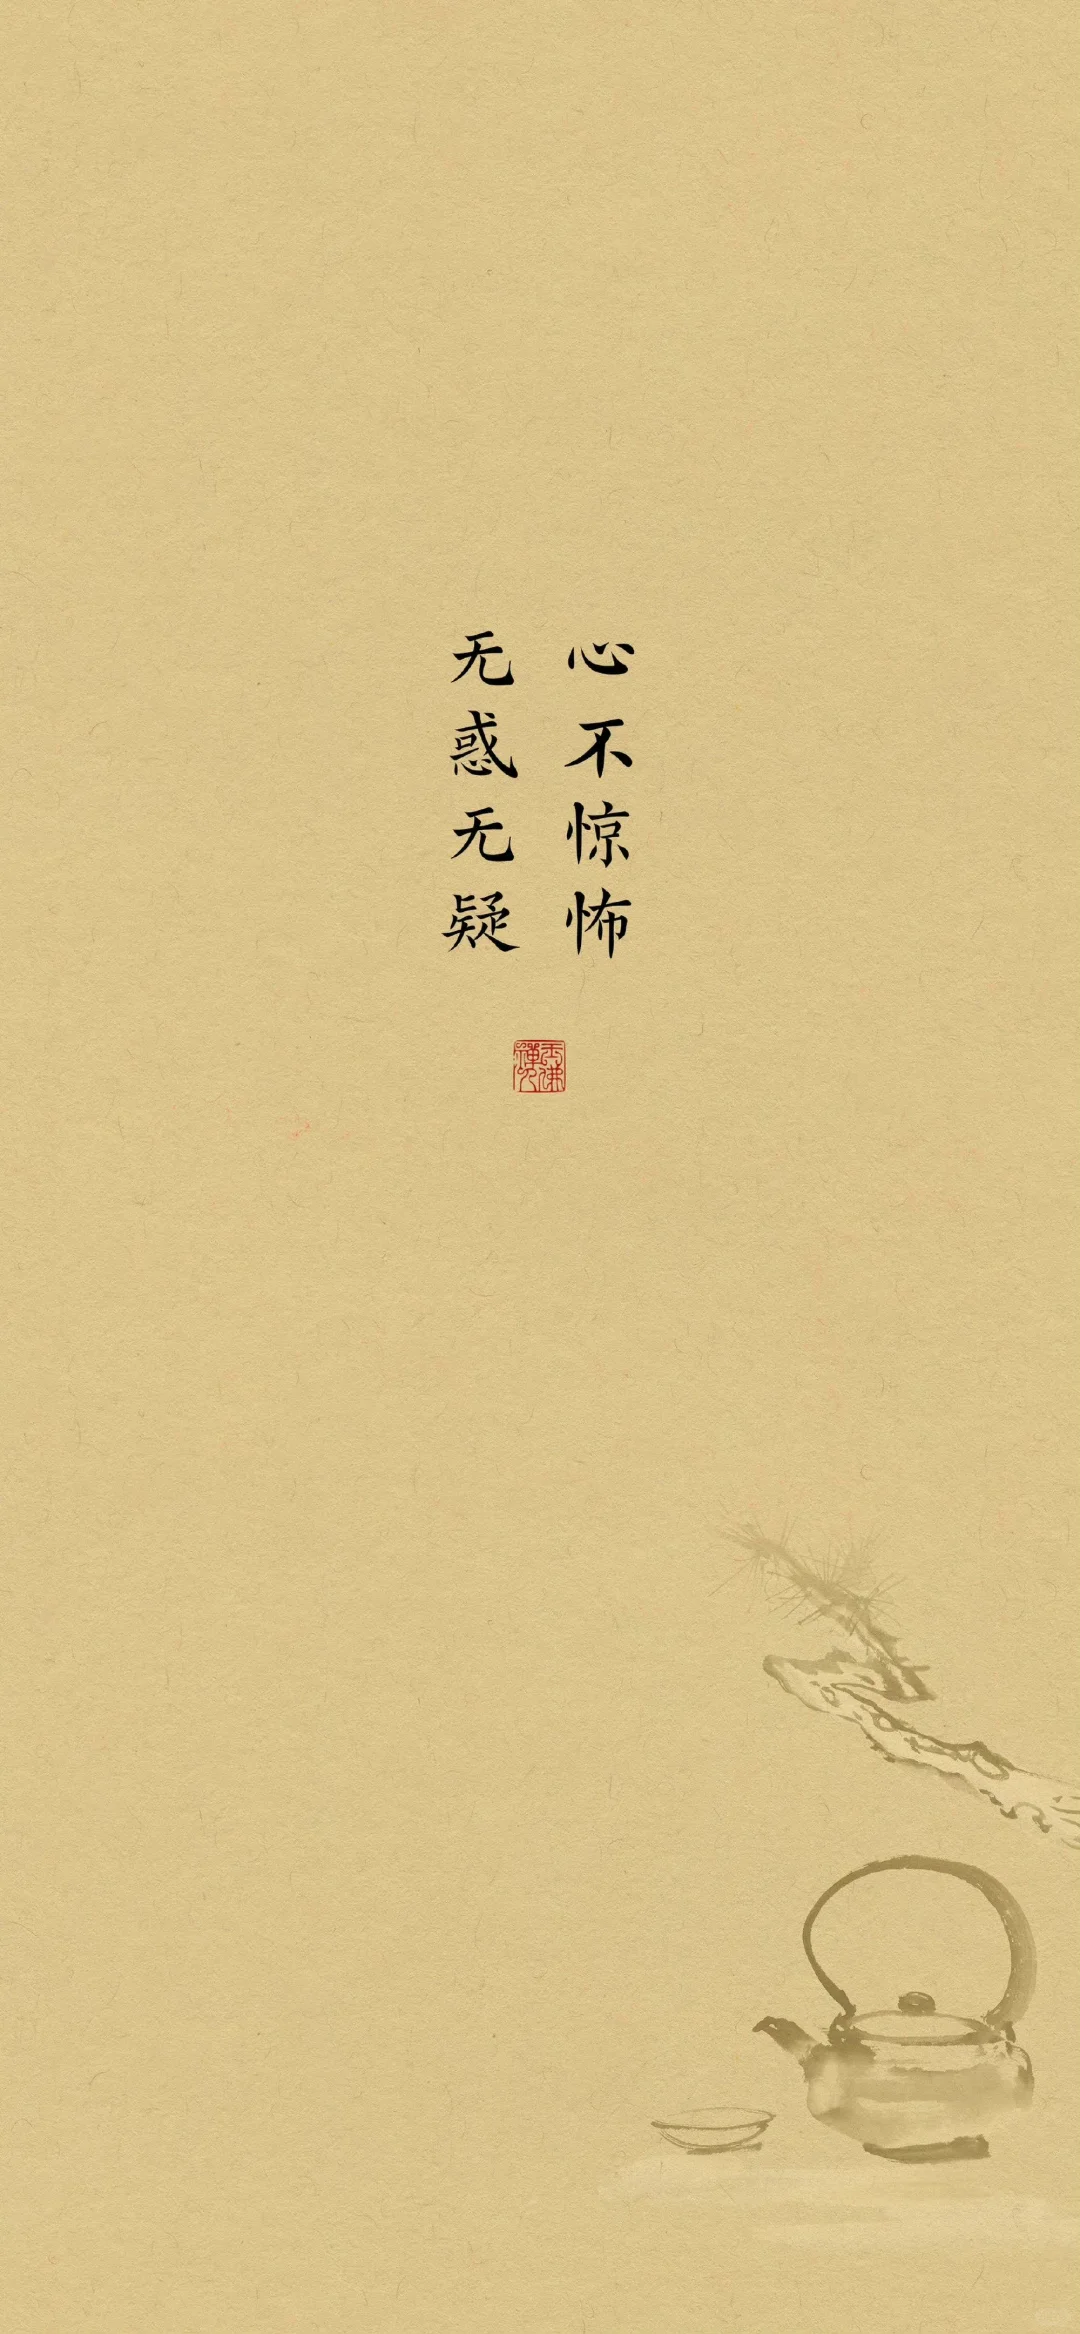 心不惊怖
无惑无疑